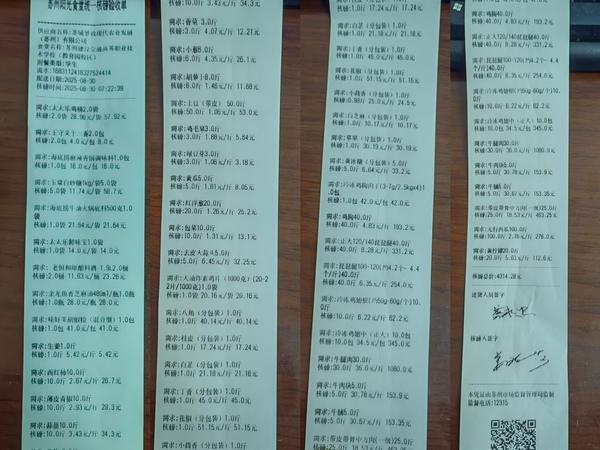 苏州阳光食堂统一核磅验收单
(苏州)有限公司
用餐类型:学生
流水:1683112418327524414
配送日期:2025-08-30
核磅时间:2025-08-30 07:22:39
需求:太太乐鸡精2.0袋
核磅:2.0袋 28.96元/袋 57.92元
需求:王守义十三香2.0包
核磅:2.0包 4.0元/包 8.0元
核磅:1.0包 16.0元/包 16.0元
需求:玉棠白砂糖1kg/袋5.0袋
核磅:5.0袋 11.74元/袋 58.7元
需求:海底捞牛油火锅底料500克1.0袋
核磅:1.0袋 21.64元/袋 21.64元
需求:太太乐鲜味宝1.0袋
核磅:1.0袋 14.0元/袋 14.0元
需求:老恒和精酿料酒 1.8L2.0桶
核磅:2.0桶 11.63元/桶 23.26元
需求:金龙鱼香芝麻油480ml/瓶1.0瓶
核磅:1.0瓶 28.0元/瓶 28.0元
核磅:1.0包 41.0元/包 41.0元
需求:生姜1.0斤
核磅:1.0斤 5.42元/斤 5.42元
需求:西红柿10.0斤
核磅:10.0斤 2.67元/斤 26.7元
需求:薄皮青椒10.0斤
核磅:10.0斤 2.93元/斤 29.3元
需求:蒜苗10.0斤
核磅:10.0斤 3.43元/斤 34.3元
核磅:10.0斤 3.43元/斤 34.3元
需求:香菜 3.0斤
核磅:3.0斤 4.07元/斤 12.21元
需求:小葱6.0斤
核磅:6.0斤 4.35元/斤 26.1元
需求:胡萝卜8.0斤
核磅:8.0斤 1.46元/斤 11.68元
需求:土豆(带皮) 50.0斤
核磅:50.0斤 1.06元/斤 53.0元
需求:鸡毛菜3.0斤
核磅:3.0斤 1.88元/斤 5.64元
需求:绿豆芽3.0斤
核磅:3.0斤 1.06元/斤 3.18元
需求:黄瓜5.0斤
核磅:5.0斤 1.61元/斤 8.05元
需求:红洋葱20.0斤
核磅:20.0斤 1.26元/斤 25.2元
需求:包菜10.0斤
核磅:10.0斤 1.31元/斤 13.1元
需求:去皮大蒜头5.0斤
核磅:5.0斤 6.45元/斤 32.25元
核磅:1.0袋 20.16元/袋 20.16元
需求:八角(分包装)1.0斤
核磅:1.0斤 40.14元/斤 40.14元
需求:桂皮(分包装)1.0斤
核磅:1.0斤 17.24元/斤 17.24元
需求:白芷(分包装)1.0斤
核磅:1.0斤 21.18元/斤 21.18元
需求:丁香(分包装)1.0斤
核磅:1.0斤 45.0元/斤 45.0元
需求:花椒(分包装)1.0斤
核磅:1.0斤 51.15元/斤 51.15元
需求:小茴香(分包装)1.0斤
核磅:1.0斤 17.24元/斤 17.24元
需求:白芷(分包装)1.0斤
核磅:1.0斤 21.18元/斤 21.18元
需求:丁香(分包装)1.0斤
核磅:1.0斤 45.0元/斤 45.0元
需求:花椒(分包装)1.0斤
核磅:1.0斤 51.15元/斤 51.15元
需求:小茴香(分包装)1.0斤
核磅:0.98斤 25.0元/斤 24.5元
需求:白芝麻(分包装)1.0斤
核磅:1.0斤 10.17元/斤 10.17元
需求:草果(分包装)1.0斤
核磅:1.0斤 30.19元/斤 30.19元
需求:黄冰糖(分包装)5.0斤
核磅:5.0斤 6.64元/斤 33.2元
核磅:1.0包 42.0元/包 42.0元
需求:鸡胸40.0斤
核磅:40.0斤 4.83元/斤 193.2元
需求:正大120/140琵琶腿40.0斤
核磅:40.0斤 8.28元/斤 331.2元
需求:琵琶腿100-120(约4.2个-4.4个/斤)40.0斤
核磅:40.0斤 6.35元/斤 254.0元
需求:冷冻鸡翅根(约50g-60g/个)10.0斤
核磅:10.0斤 6.22元/斤 62.2元
需求:冷冻鸡翅中(正大)10.0斤
核磅:10.0斤 34.5元/斤 345.0元
需求:牛腿肉30.0斤
核磅:30.0斤 36.0元/斤 1080.0元
需求:牛肉块5.0斤
核磅:5.0斤 30.78元/斤 153.9元
需求:牛腩5.0斤
核磅:5.0斤 30.67元/斤 153.35元
需求:带皮带骨中方肉(一级)25.0斤
核磅:25.0斤 18.53元/斤 463.25元
需求:鸡胸40.0斤
核磅:40.0斤 4.83元/斤 193.2元
需求:正大120/140琵琶腿40.0斤
核磅:40.0斤 8.28元/斤 331.2元
需求:琵琶腿100-120(约4.2个-4.4个/斤)40.0斤
核磅:40.0斤 6.35元/斤 254.0元
需求:冷冻鸡翅根(约50g-60g/个)10.0斤
核磅:10.0斤 6.22元/斤 62.2元
需求:冷冻鸡翅中(正大)10.0斤
核磅:10.0斤 34.5元/斤 345.0元
需求:牛腿肉30.0斤
核磅:30.0斤 36.0元/斤 1080.0元
需求:牛肉块5.0斤
核磅:5.0斤 30.78元/斤 153.9元
需求:牛腩5.0斤
核磅:5.0斤 30.67元/斤 153.35元
需求:带皮带骨中方肉(一级)25.0斤
核磅:25.0斤 18.53元/斤 463.25元
核磅:100.0斤 2.76元/斤 276.0元
核磅:20.0斤 5.63元/斤 112.6元
核磅总价:4314.28元
送货人员签字
核磅人签字
本凭证由苏州市场监督管理局监制
监督电话:12315